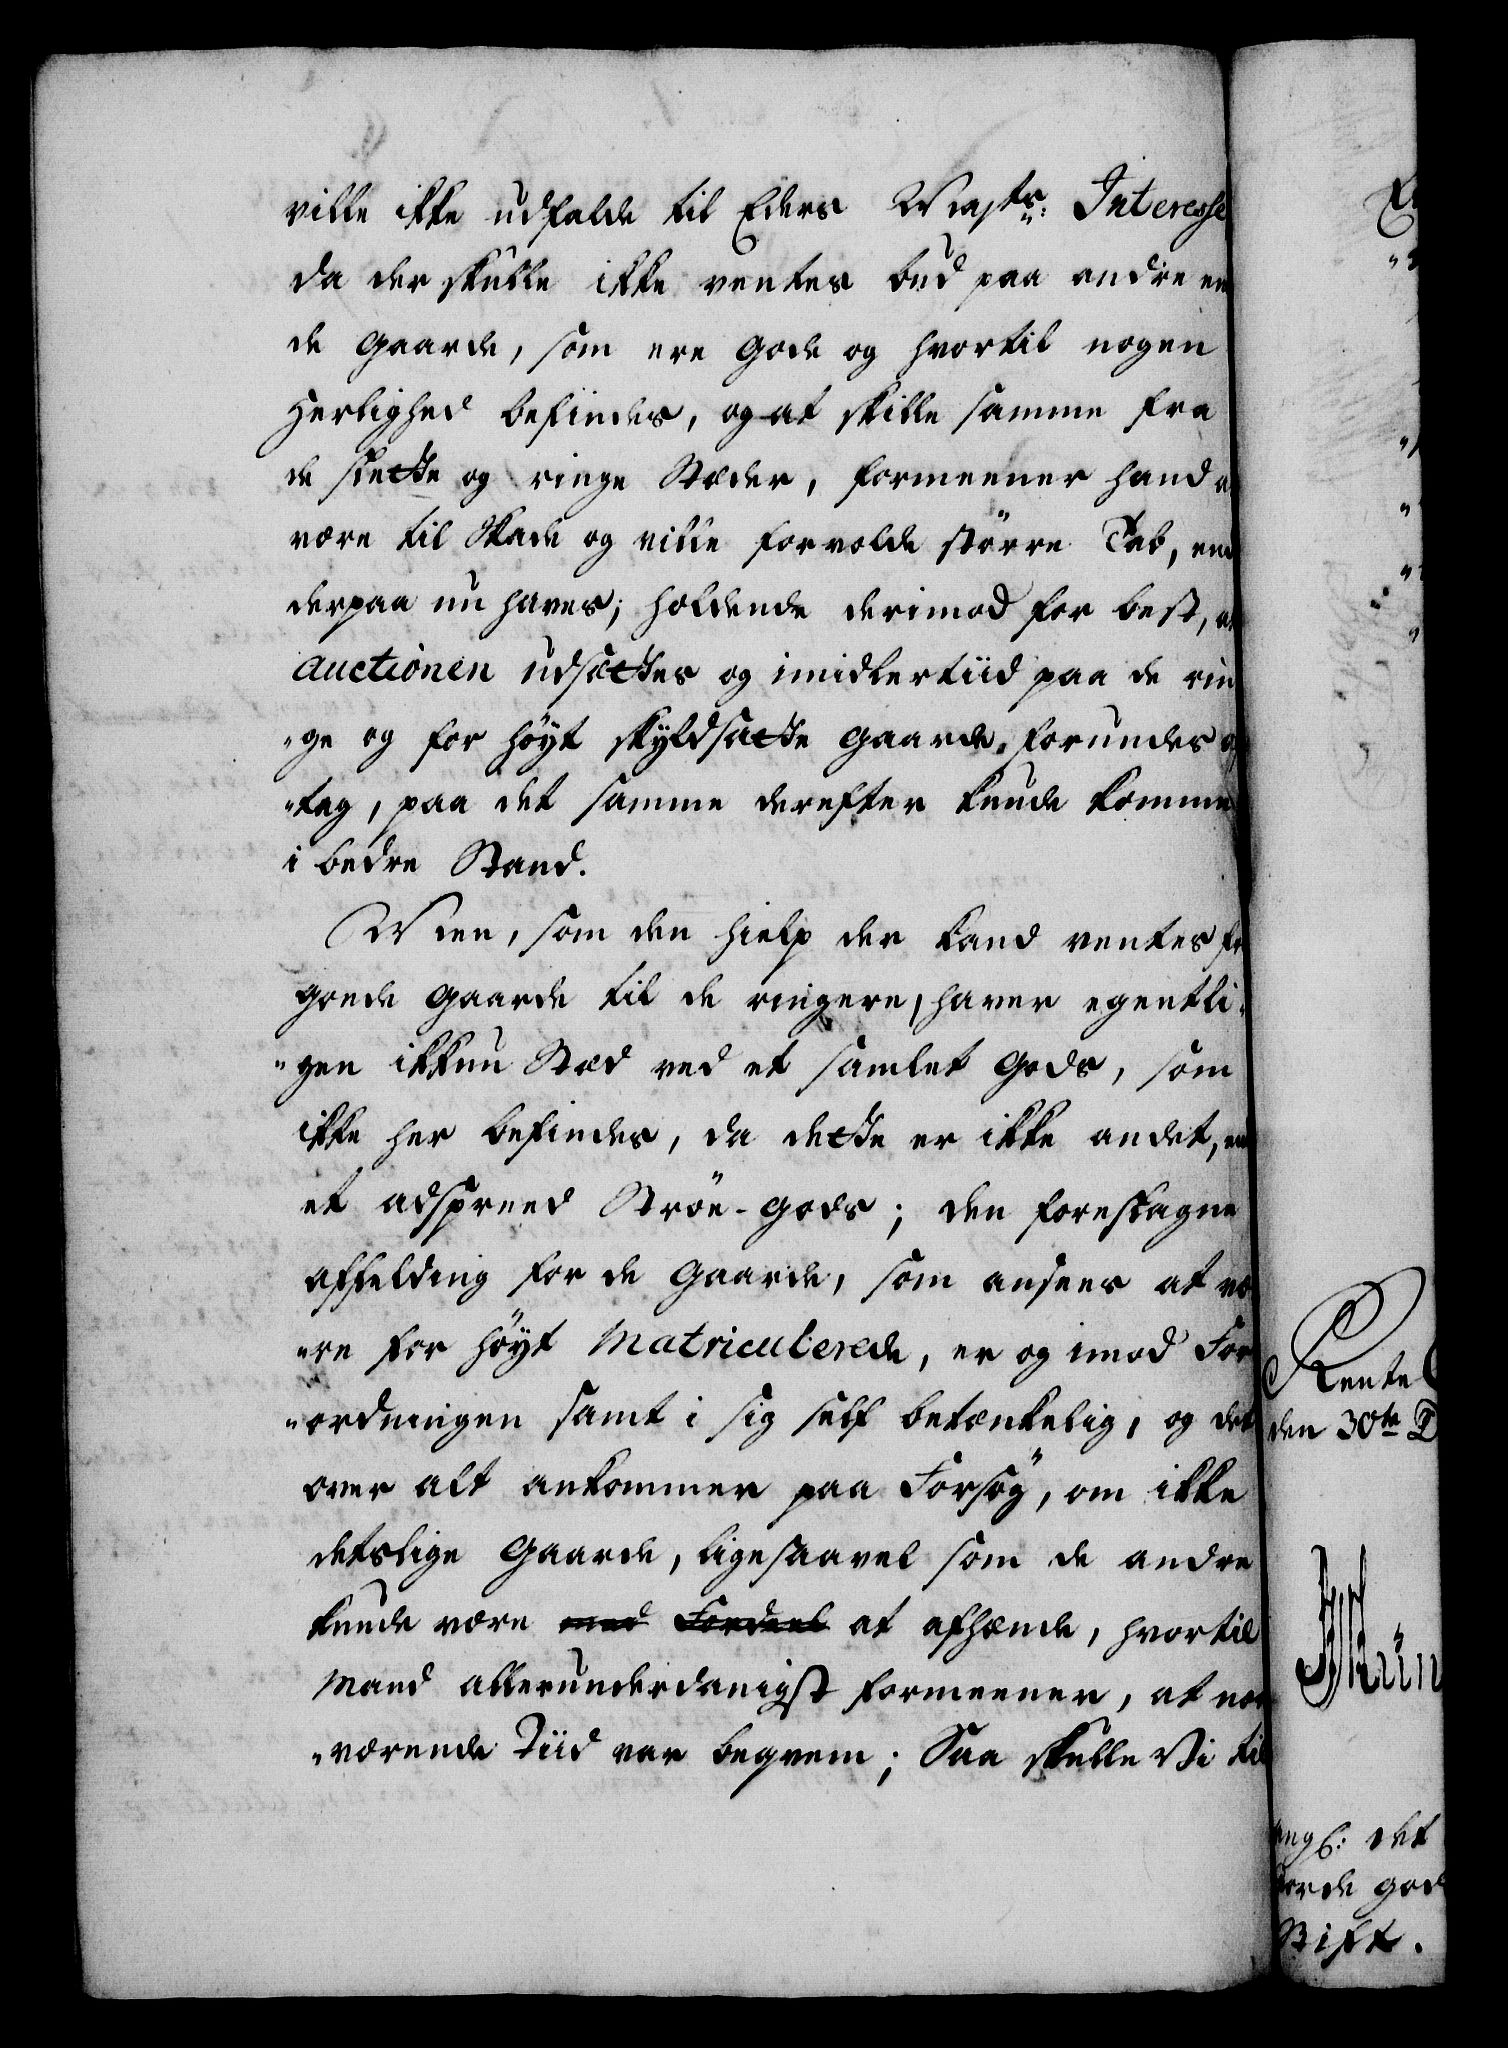 ville ikke udfalde til Eders Mayts: Interesse
da der skulle ikke ventes bud paa andre en
de Gaarde, som ere Gode og hvortil nogen
Herlighed befindes, og at skille samme fra
de slette og ringe Stæder, formeener hand a
være til Skade og ville forvolde større Tab, end
derpaa nu haves; holdende derimod for best, at
Auctionen udsættes og imidlertiid paa de rin
"ge og for høyt skyldsatte Gaarde, forundes
"tag, paa det samme derefter kunde komme
i bedre Stand.
Men, som den hielp der kand ventes fra
goede Gaarde til de ringere, haver egentli-
"gen ikkun Stæd ved et samlet Gods, som
ikke her befindes, da dette er ikke andet, end
et adspreed Strøe-Gods; den foreslagne
affelding for de Gaarde, som ansees at væ
"re for høyt Matriculerede, er og imod For
"ordningen samt i sig self betænkelig, og det
over alt ankommer paa Forsøg, om ikke
detslige Gaarde, ligesaavel som de andre
kunde være med Fordeel at afhænde, hvortil
Mand allerunderdanigst formeener, at nær
"værende Tiid var beqvem; Saa skulle Vi til
Rente
den 30te
det
god
Stift.